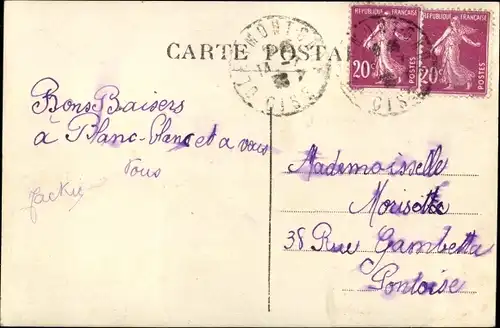 CARTE POSTA
RÉPUBLIQUE FRANÇAISE
20c
POSTES
RÉPUBLIQUE FRANÇAISE
20c
POSTES
OISE
Bons Baisers
à Blanc-blanc et a vous
tous
Jackie
Mademoiselle
Morisette
38 Rue Gambetta
Pontoise